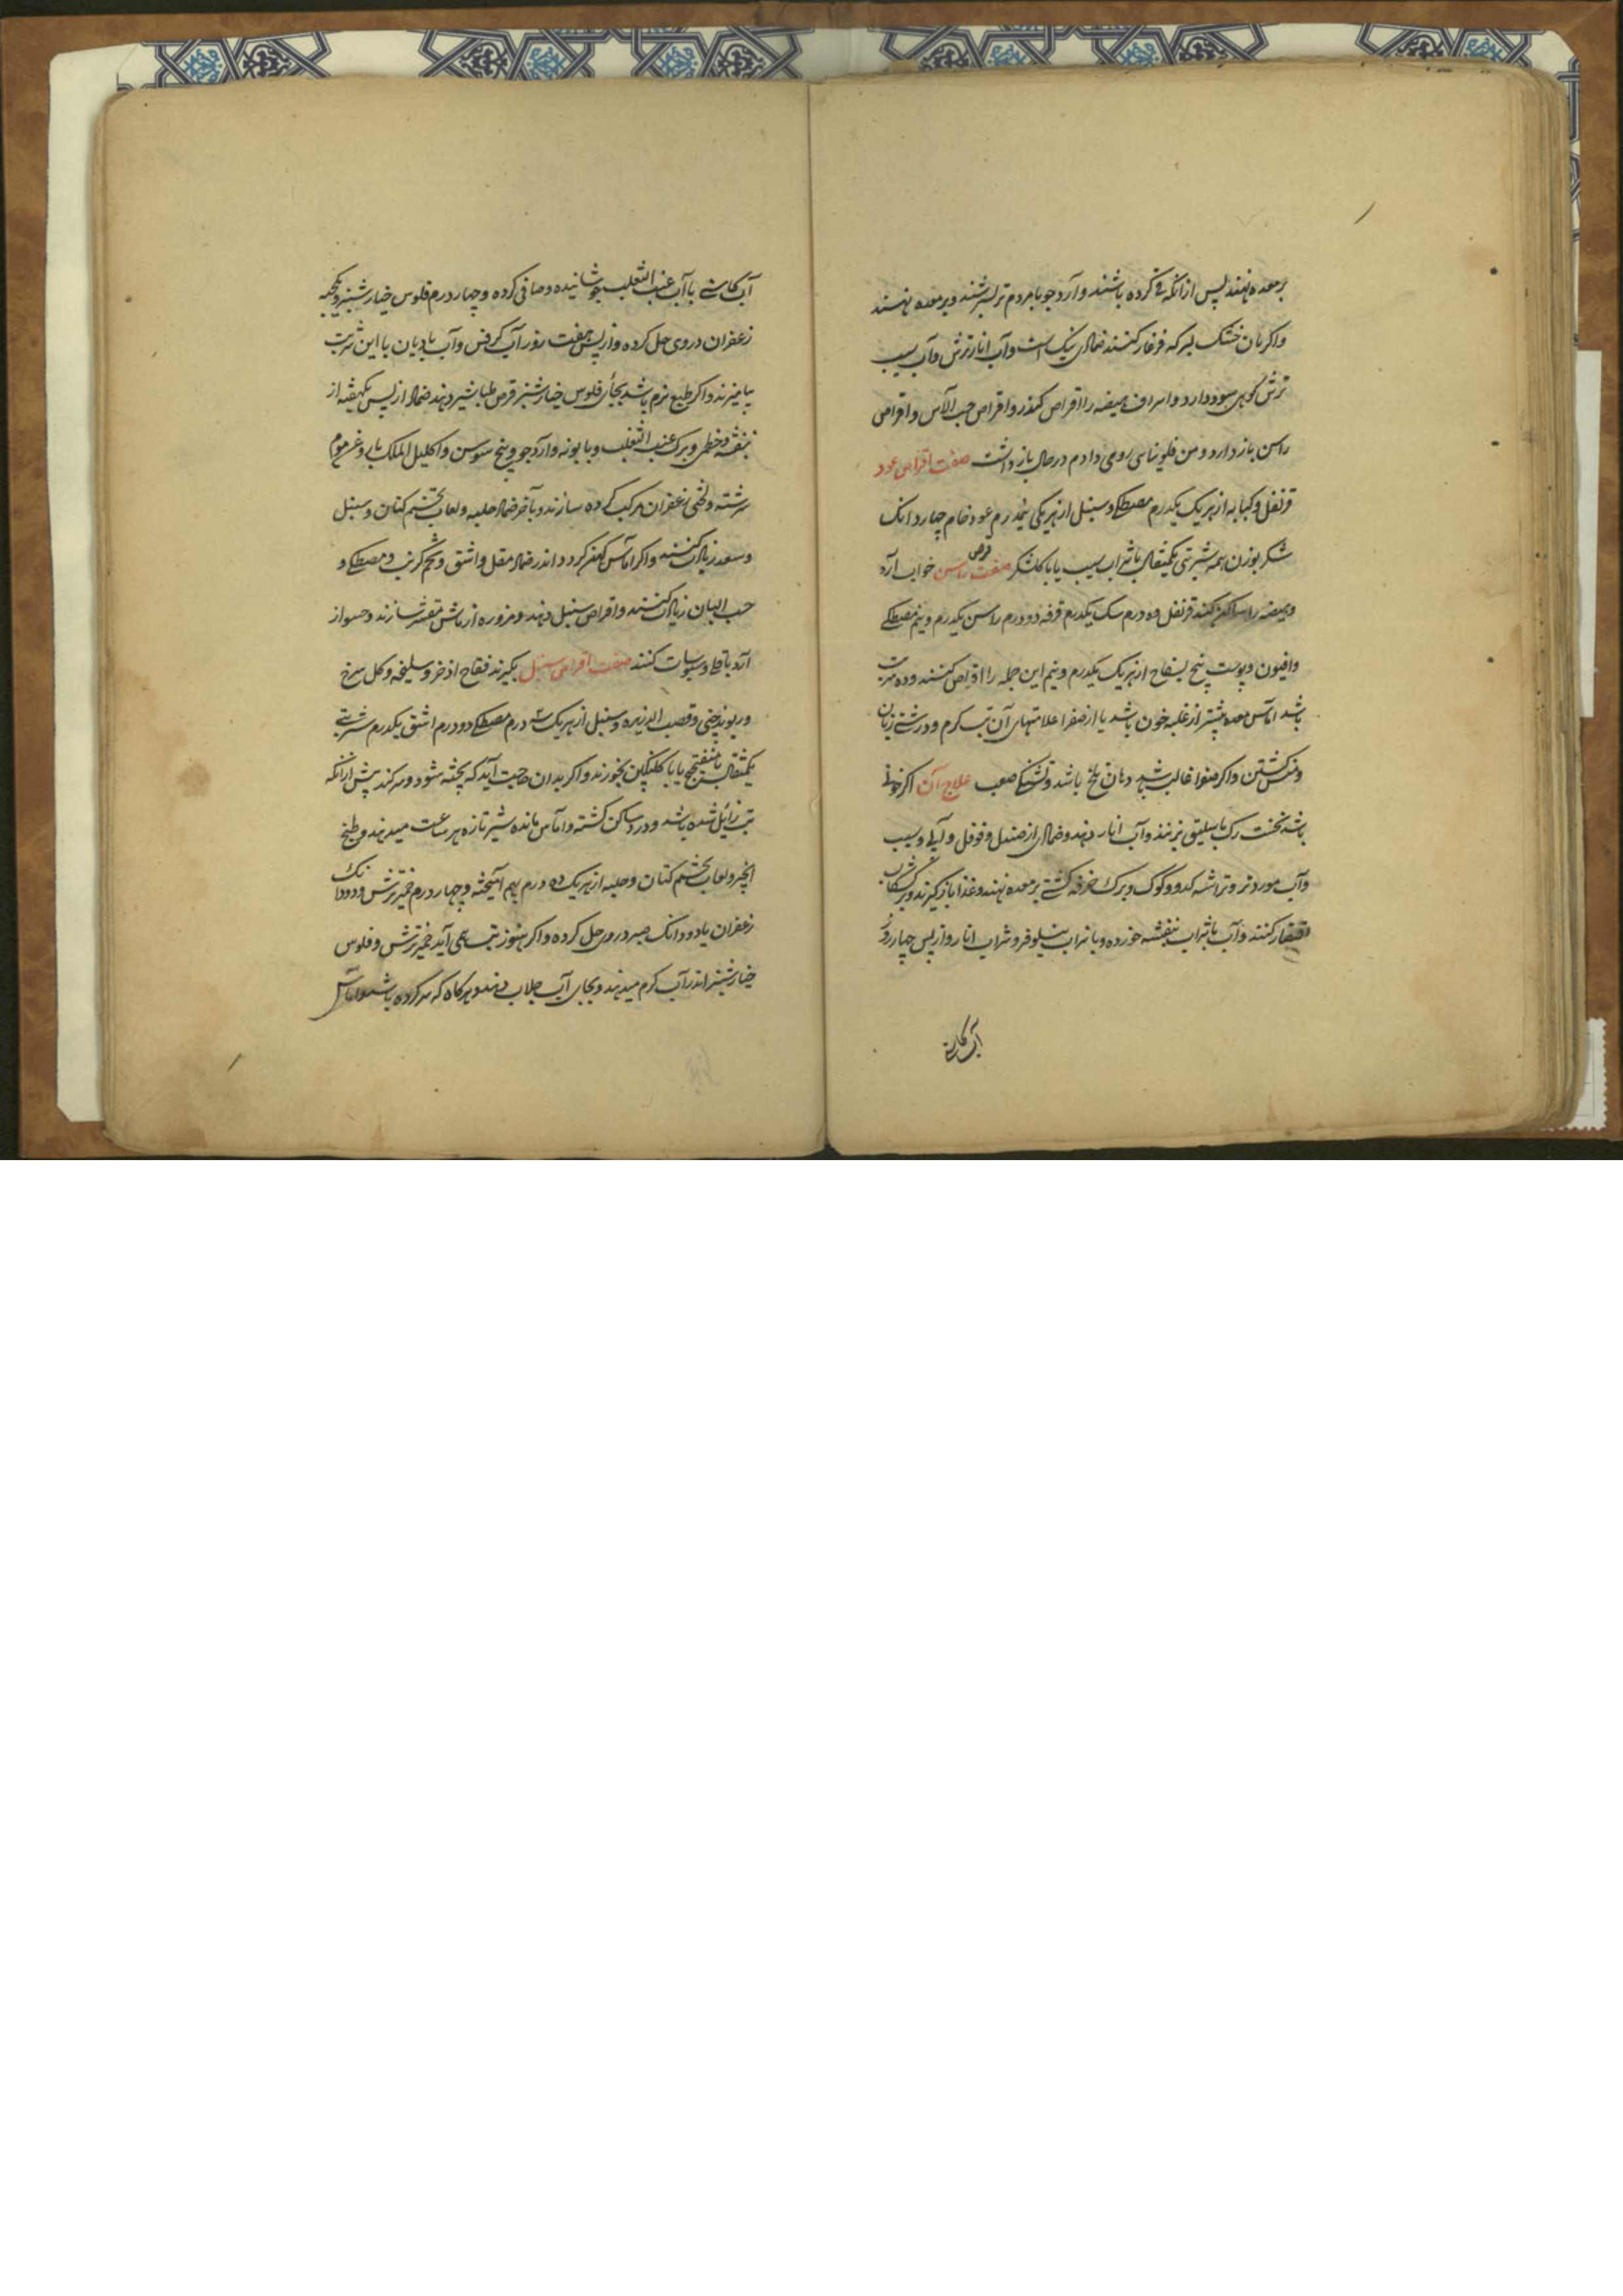 بر معده نهند پس از آنکه قی کرده باشند و آرد جو با مردم تر بسرشند و بر معده نهند
و اکر نان خشک بسرکه فرغار کنند ضمادی نیک است و آب انار ترش و آب سیب
ترش کوهی سود دارد و اسراف هیضه را اقراص کندر و اقراص حب الآس و اقراص
راسن باز دارد و من فلونیای رومی دادم در حال باز داشت صفت اقراص عود
قرنفل و کبابه از هر یک یکدرم مصطکی و سنبل از هر یکی نیمدرم عود خام چهار دانک
شکر بوزن همه شربتی یکمثقال با شراب سیب یا با کلشکر صفت قرص راسن خواب آرد
و هیضه را ساکن کند قرنفل ده درم سک یکدرم قرفه دو درم راسن یکدرم و نیم مصطکی
و افیون و پوست بیخ لفاح از هر یک یکدرم و نیم این جمله را اقراص کنند و ده شربت
باشد اماس معده بیشتر از غلبه خون باشد یا از صفرا علامتهای آن تب کرم و درشتی زبان
و کشتن و اکر صفرا غالب باشد دهان تلخ باشد و تشنکی صعب علاج آن اکر خون
باشد نخست رک باسلیق بزنند و آب انار دهند و ضمادی از صندل و فوفل و آبی و سیب
و آب مورد تر و تراشه کدو و کوک و برک خرفه کشتی بر معده نهند و غذا باز کیرند و بر کشکاب
اقتصار کنند و آب با شراب بنفشه خورده و با شراب نیلوفر و شراب انار و از پس چهار روز
آب کاسنی
آب کاسنی با آب عنب الثعلب جوشانیده و صافی کرده و چهار درم فلوس خیارشنبر و یکحبه
زعفران در وی حل کرده و از پس هفت روز آب کرفس و آب بادیان با این شربت
بیامیزند و اکر طبع نرم باشد بجای فلوس خیارشنبر قرص طباشیر دهند ضماد از پس یکهفته از
بنفشه و خطمی و برک عنب الثعلب و بابونه و آرد جو و بیخ سوسن و اکلیل الملک با روغن موم
سرشته و لختی زعفران مرکب کرده سازند و بآخر ضماد حلبه و لعاب تخم کتان و سنبل
و سعد زیادت کنند و اکر اماس کهن کردد اندر ضماد مقل و اشق و تخم کرنب و مصطکی و
حب البان زیادت کنند و اقراص سنبل دهند و مزوره از ماش مقشر سازند و حسو از
آرد باقلی و سبوسات کنند صفت اقراص سنبل بکیرند فقاح اذخر و سلیخه و کل سرخ
و ریوند چینی و قصب الذریره و سنبل از هر یک سه درم مصطکی دو درم اشق یکدرم شربتی
یکمثقال با میفختج یا با کلنکبین بخورند و اکر بدان حاجت آید که پخته شود و سر کند پیش از آنکه
تب زائل شده باشد و درد ساکن کشته و آماس مانده شیر تازه هر ساعت میدهند و طبیخ
انجیر و لعاب تخم کتان و حلبه از هر یک ده درم بهم آمیخته و چهار درم خمیر ترش و دو دانک
زعفران یا دو دانک صبر در وی حل کرده و اکر هنوز تب همی آید خمیر ترش و فلوس
خیارشنبر اندر آب کرم میدهند و بجای آب جلاب دهند و هرکاه که سر کرده باشد و اماس